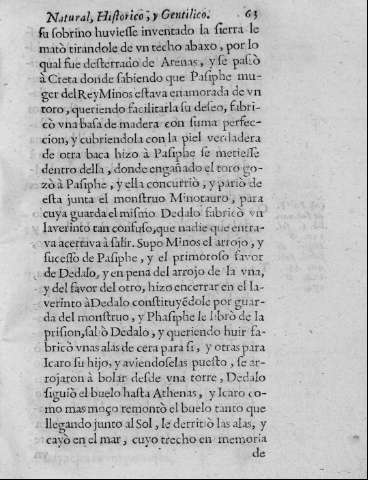 Natural, Historico, y Gentilico. 63
su sobrino huviesse inventado la sierra le
matò tirandole de vn techo abaxo, por lo
qual fue desterrado de Atenas, y se passò
à Creta donde sabiendo que Pasiphe mu-
ger del Rey Minos estava enamorada de vn
toro, queriendo facilitarla su deseo, fabri-
cò vna basa de madera con suma perfec-
cion, y cubriendola con la piel verdadera
de otra baca hizo à Pasiphe se metiesse
dentro della, donde engañado el toro go-
zò à Pasiphe, y ella concurriò, y pariò de
esta junta el monstruo Minotauro, para
cuya guarda el mismo Dedalo fabricò vn
laverinto tan confuso, que nadie que entra-
va acertava à salir. Supo Minos el arrojo, y
sucesso de Pasiphe, y el primoroso favor
de Dedalo, y en pena del arrojo de la vna,
y del favor del otro, hizo encerrar en el la-
verinto à Dedalo constituyẽdole por guar-
da del monstruo, y Phasiphe le librò de la
prision, saliò Dedalo, y queriendo huir fa-
bricò vnas alas de cera para si, y otras para
Icaro su hijo, y aviendoselas puesto, se ar-
rojaron à bolar desde vna torre, Dedalo
siguiò el buelo hasta Athenas, y Icaro co-
mo mas moço remontò el buelo tanto que
llegando junto al Sol, le derritiò las alas, y
cayò en el mar, cuyo trecho en memoria
de